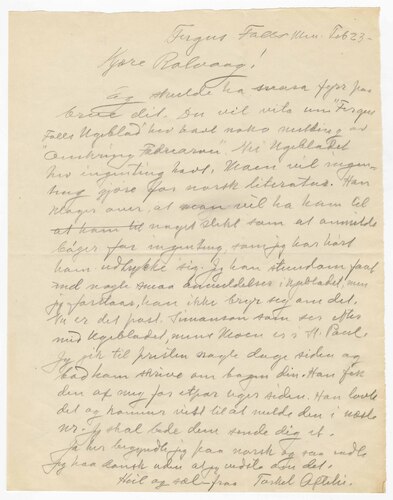 Fergus Falls Min. Feb 23-
Kjære Rolvaag!
Eg skulde ha svara fyrr paa
brevet dit. Du vil vita um "Fergus
Falls Ugeblad" hev havt noko melding av
"Omkring Fædrearven". Nei Ugebladet
hev ingenting havt. Moen vil ingen-
ting gjøre for norsk literatur. Han
klager over, at man vil ha ham til
at ham til noget slikt som at anmelde
bøger for ingenting, som jeg har hørt
ham udtrykke sig. Jeg han stundom faat
ind nogle smaa anmeldelser i Ugebladet, men
jeg forstaar, han ikke bryr sig om det.
Nu er det past. Simanson som ser efter
med Ugebladet, mens Moen er i St. Paul.
Jeg gik til presten nogle dage siden og
bad ham skrive om bogen din. Han fik
den af mig for et par uger siden. Han lovte
det og kommer vist til at melde den i næste
nr. Jeg skal bede dem sende dig et.
Ja her begyndte jeg paa norsk og saa endte
jeg paa dansk uden at jeg vidste om det.
Heil og sæl fraa Torkel Oftelie.